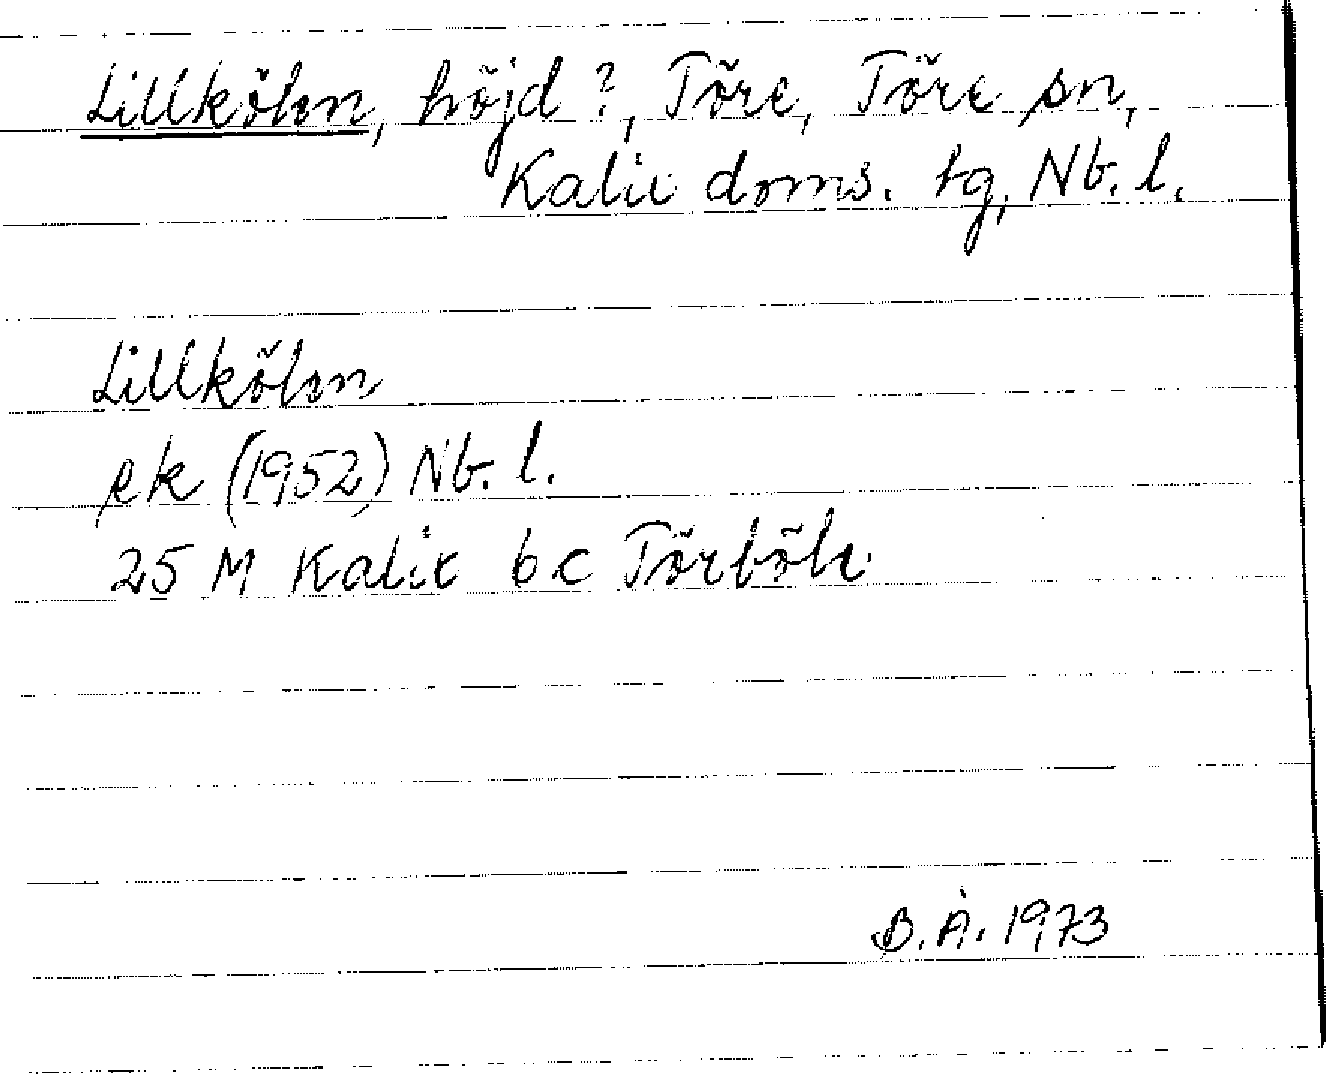 Lillkölen, höjd?, Töre, Töre sn,
Kalix doms. tg, Nb. l.
Lillkölen
ek (1952) Nb. l.
25 M Kalix 6 c Törböle
B.Å. 1973